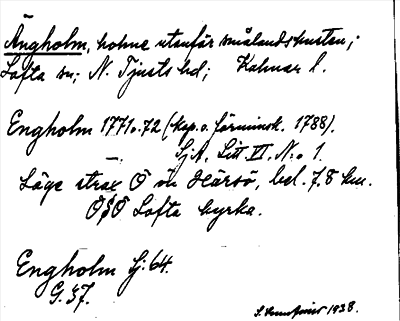 Ängholm, holme utanför smålandskusten;
Lofta sn; N. Tjusts hd; Kalmar l.
Engholm 1771 o. 72 (kap. o. förminsk. 1788).
SjA, Litt VI, N:o 1.
Läge strax Ö ön Härsö, bel. 7,8 km.
ÖSÖ Lofta kyrka.
Engholm Sj. 64.
G. 37.
1938.